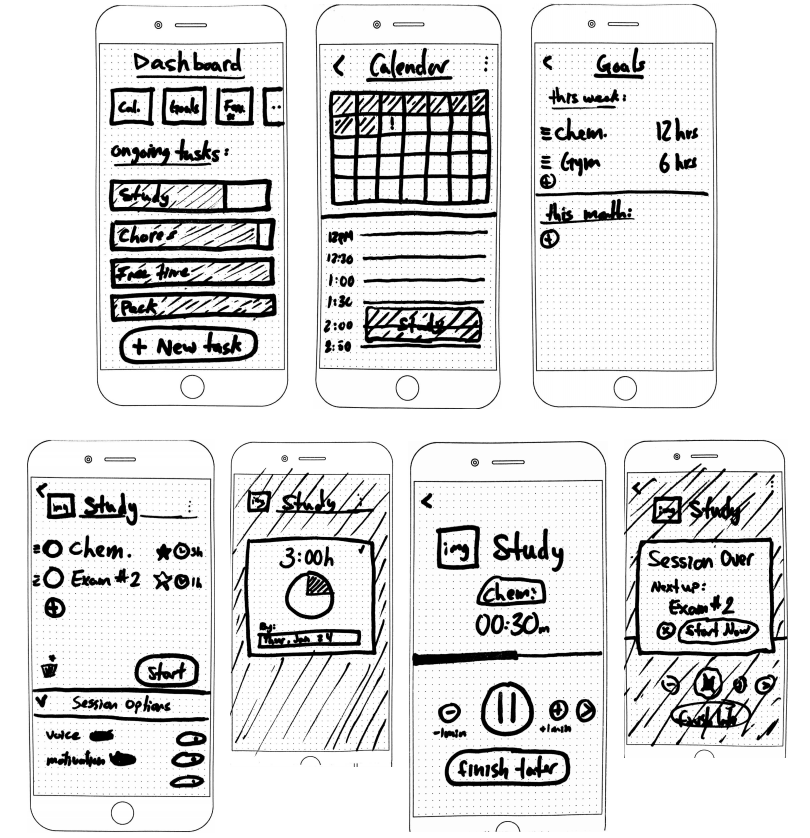 Dashboard
Cal.
Goals
Free
ongoing tasks:
Study
Chores
Free time
Pack
+ New task
< Calendar
!
12PM
12:30
1:00
1:30
2:00
Study
2:30
< Goals
this week:
Chem. 12 hrs
Gym 6 hrs
+
this month:
+
<
img Study
Chem. 3h
Exam #2 1h
+
Start
Session Options
Voice
motivation
img Study
3:00h
By:
Thur, Jan 24
<
img Study
Chem:
00:30m
-1min
+1min
finish later
<
img Study
Session Over
Next up:
Exam #2
x Start Now
finish later